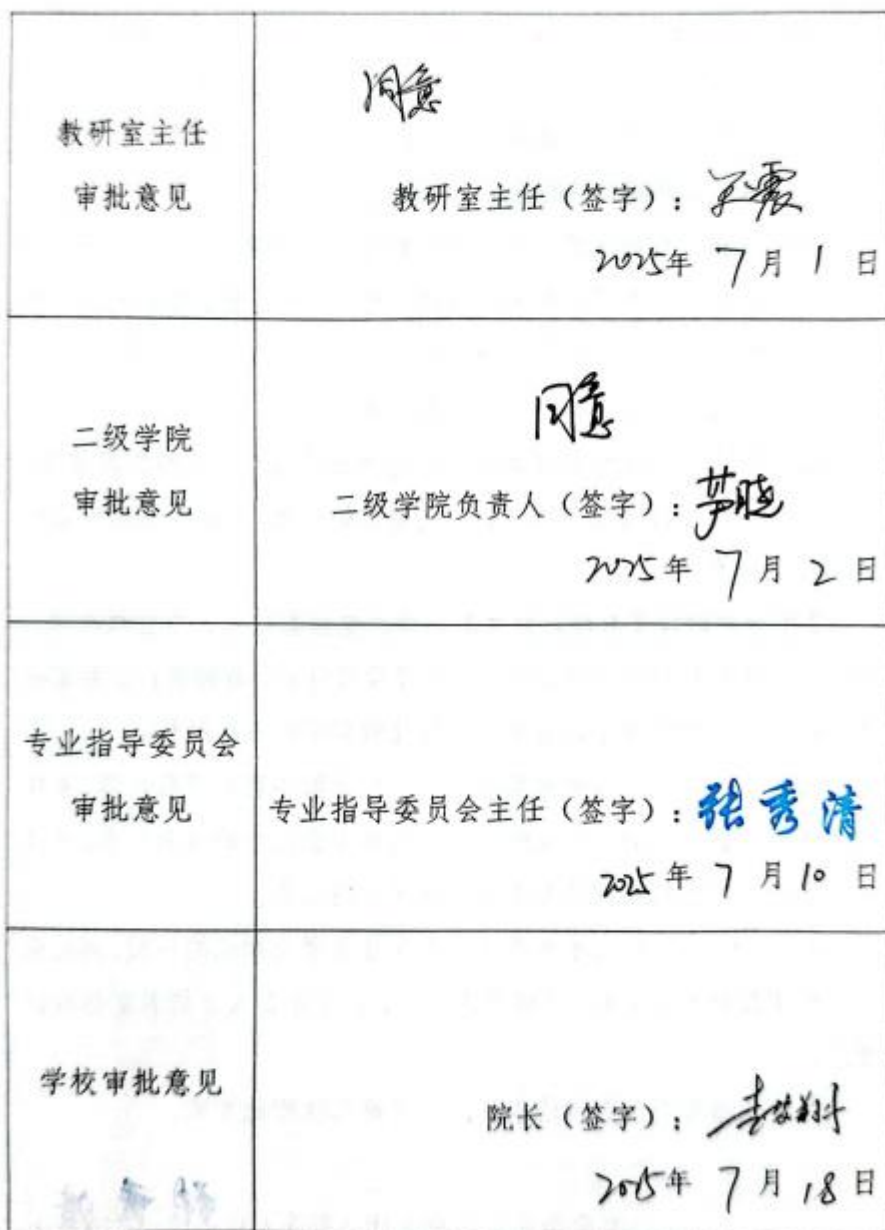 教研室主任
审批意见
同意
教研室主任（签字）：王震
2025年 7月 1 日
二级学院
审批意见
同意
二级学院负责人（签字）：
2025年 7月 2 日
专业指导委员会
审批意见
专业指导委员会主任（签字）：张秀清
2025年 7月10 日
学校审批意见
院长（签字）：
2025年 7月18日